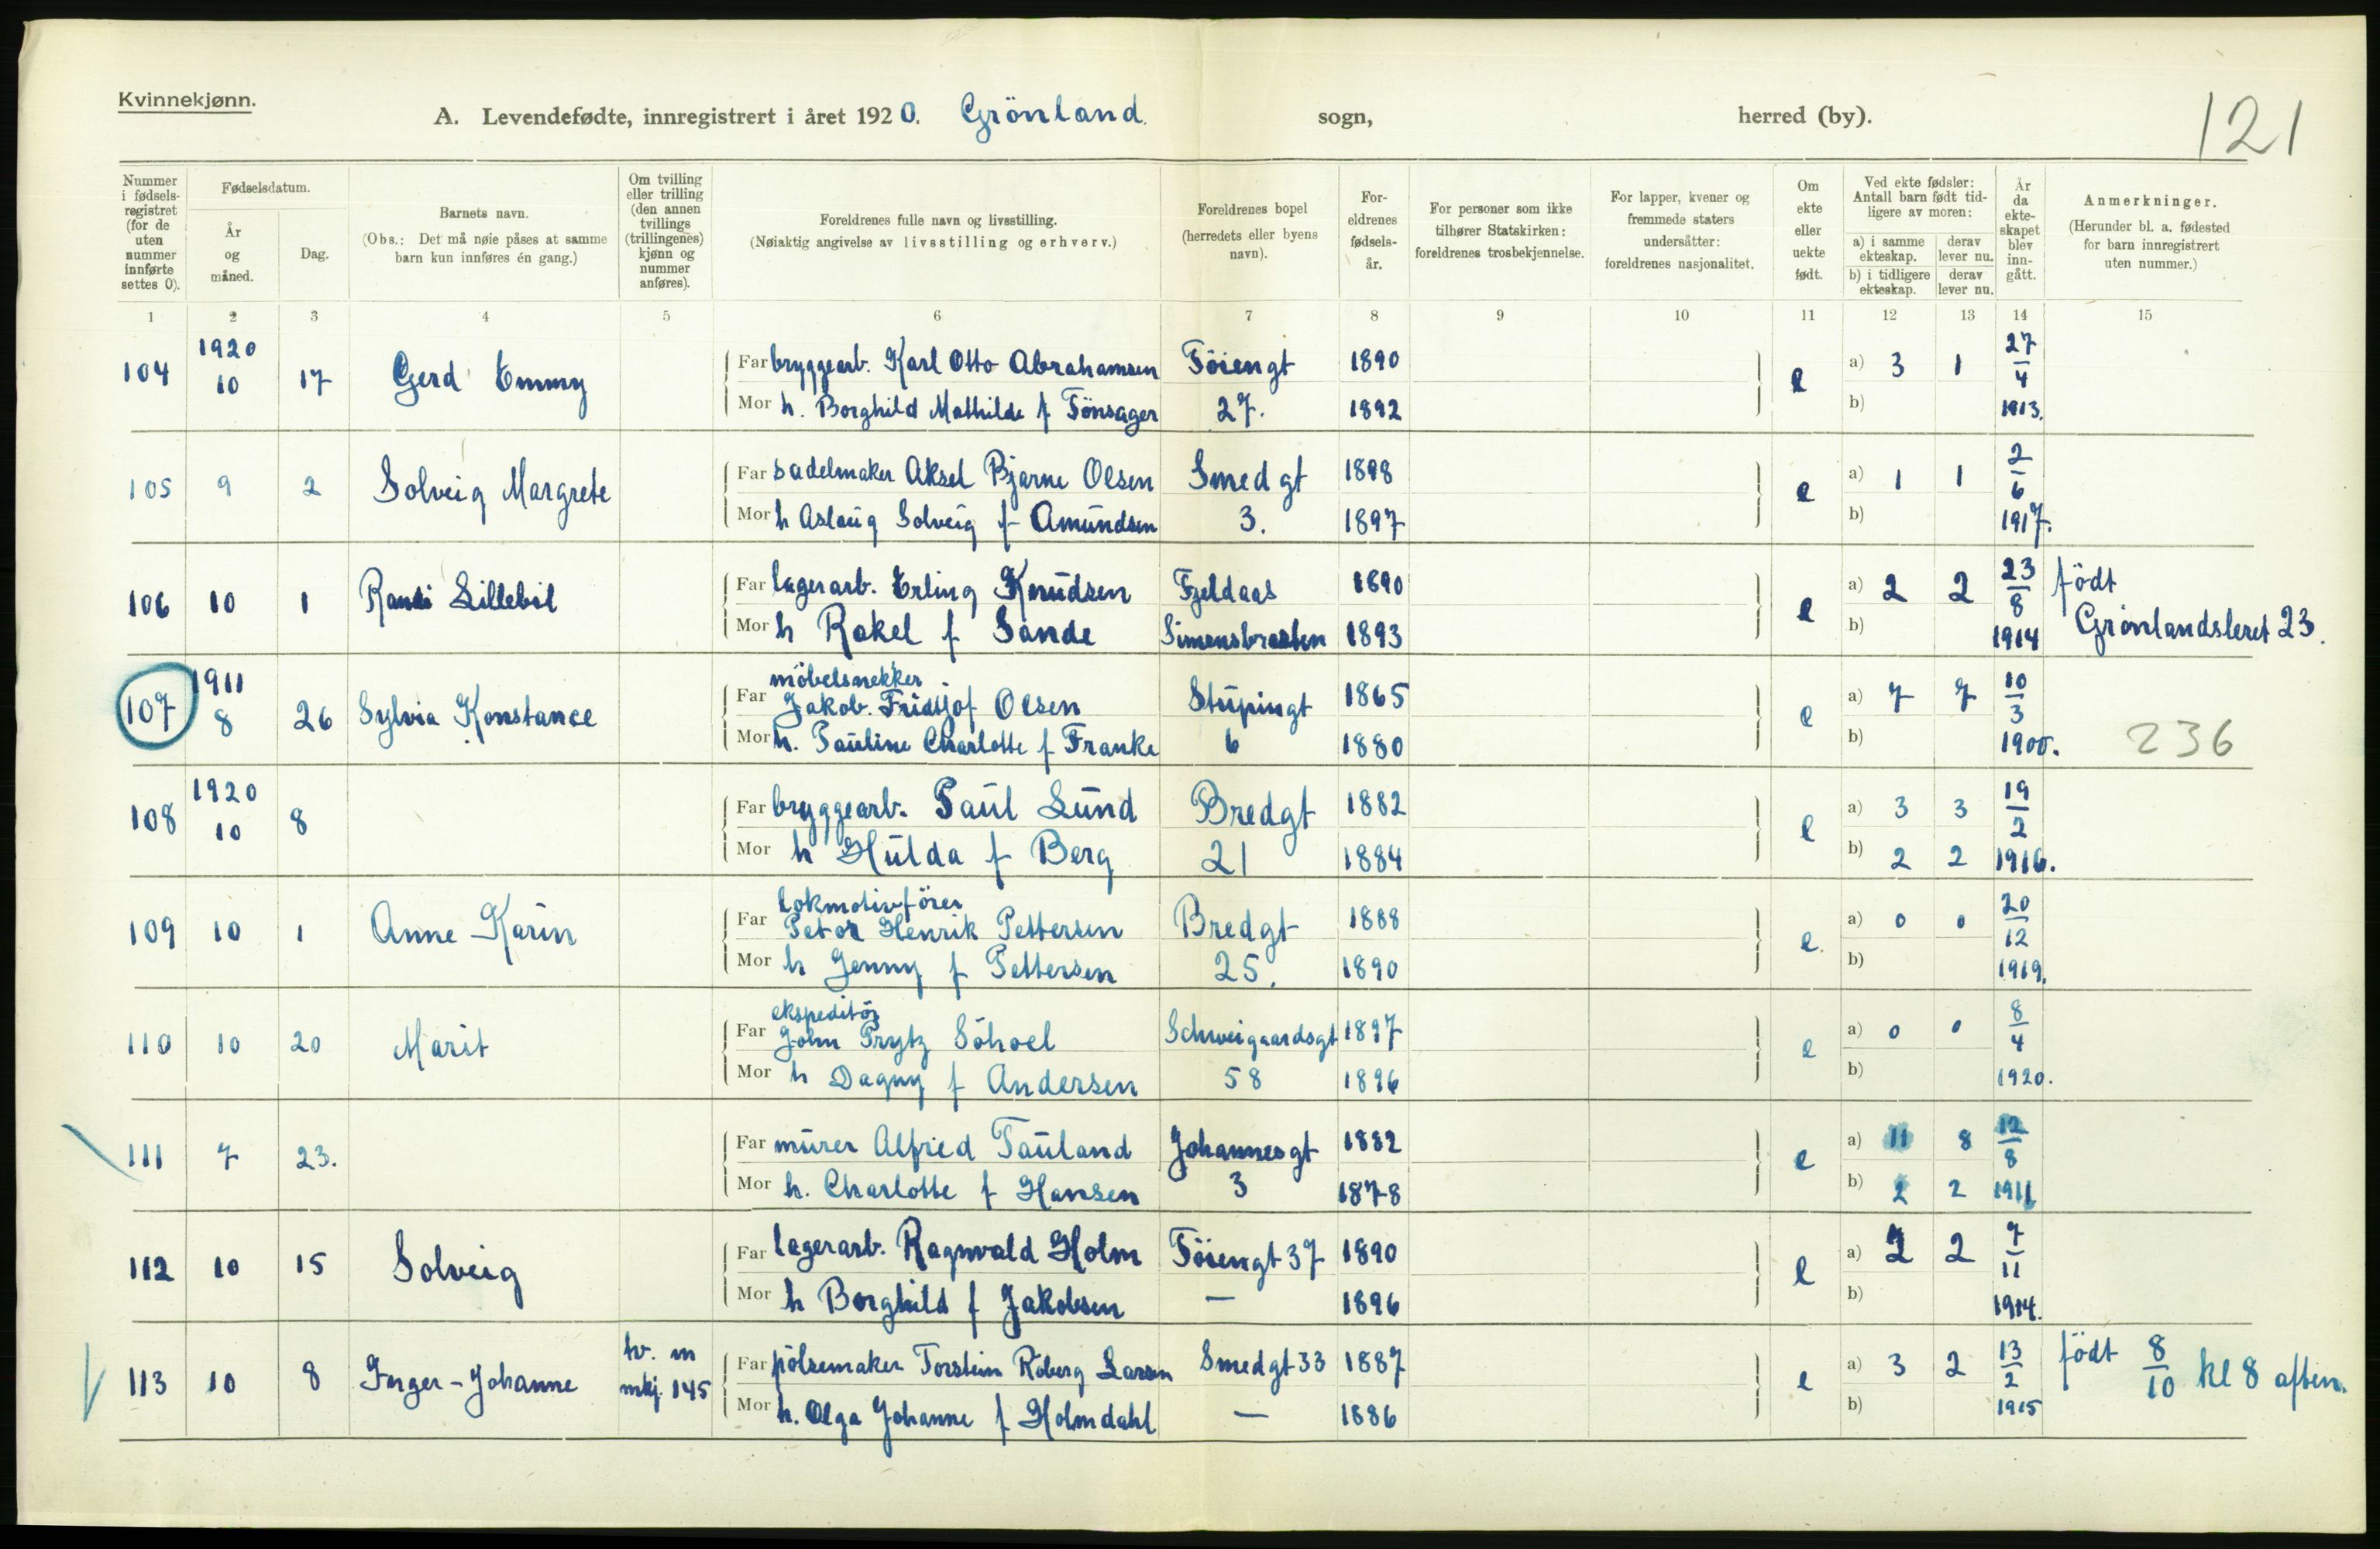 Kvinnekjønn.
A. Levendefødte, innregistrert i året 1920. Grönland sogn, herred (by).
121
Nummer i fødsels-registret (for de uten nummer innførte settes 0).
Fødselsdatum.
År og måned.
Dag.
Barnets navn.
(Obs.: Det må nøie påses at samme barn kun innføres én gang.)
Om tvilling eller trilling (den annen tvillings (trillingenes) kjønn og nummer anføres).
Foreldrenes fulle navn og livsstilling.
(Nøiaktig angivelse av livsstilling og erhverv.)
Foreldrenes bopel (herredets eller byens navn).
For-eldrenes fødsels-år.
For personer som ikke tilhører Statskirken: foreldrenes trosbekjennelse.
For lapper, kvener og fremmede staters undersåtter: foreldrenes nasjonalitet.
Om ekte eller uekte født.
Ved ekte fødsler: Antall barn født tid-ligere av moren:
a) i samme ekteskap. derav lever nu.
b) i tidligere ekteskap. derav lever nu.
År da ekte-skapet blev inn-gått.
Anmerkninger.
(Herunder bl. a. fødested for barn innregistrert uten nummer.)
1 2 3 4 5 6 7 8 9 10 11 12 13 14 15
104 1920 10 17 Gerd Emmy Far bryggearb. Karl Otto Abrahamsen Töiengt 1890 e a) 3 1 27/4
Mor h. Borghild Mathilde f Tönsager 27. 1892 b) 1913.
105 9 2 Solveig Margrete Far sadelmaker Aksel Bjarne Olsen Smedgt 1898 e a) 1 1 2/6
Mor h Aslaug Solveig f Amundsen 3. 1897 b) 1917.
106 10 1 Randi Lillebil Far lagerarb. Erling Knudsen Fjeldaas 1890 e a) 2 2 23/8 födt
Mor h Rakel f Sande Simensbraaten 1893 b) 1914 Grönlandsleret 23.
107 1911 8 26 Sylvia Konstance Far möbelsnekker
Jakob. Fridtjof Olsen Stupingt 1865 e a) 7 7 10/3
Mor h. Pauline Charlotte f Franke 6 1880 b) 1900. 236
108 1920 10 8 Far bryggearb. Paul Lund Bredgt 1882 e a) 3 3 19/2
Mor h Hulda f Berg 21 1884 b) 2 2 1916.
109 10 1 Anne Karin Far lokmotivförer
Peter Henrik Pettersen Bredgt 1888 e. a) 0 0 20/12
Mor h Jenny f Pettersen 25. 1890 b) 1919.
110 10 20 Marit Far ekspeditör
John Prytz Söhoel Schweigaardsgt 1897 e a) 0 0 8/4
Mor h Dagny f Andersen 58 1896 b) 1920.
111 7 23. Far murer Alfred Tauland Johannesgt 1882 e a) 11 8 12/8
Mor h. Charlotte f Hansen 3 1878 b) 2 2 1911
112 10 15 Solveig Far lagerarb. Ragnvald Holm Töiengt 37 1890 e a) 2 2 7/11
Mor h Borghild f Jakobsen — 1896 b) 1914.
113 10 8 Inger-Johanne tv. m Far pölsemaker Torstein Roberg Larsen Smedgt 33 1887 e a) 3 2 13/2 födt 8/10 kl 8 aften.
mkj. 145 Mor h. Olga Johanne f Holmdahl — 1886 b) 1915